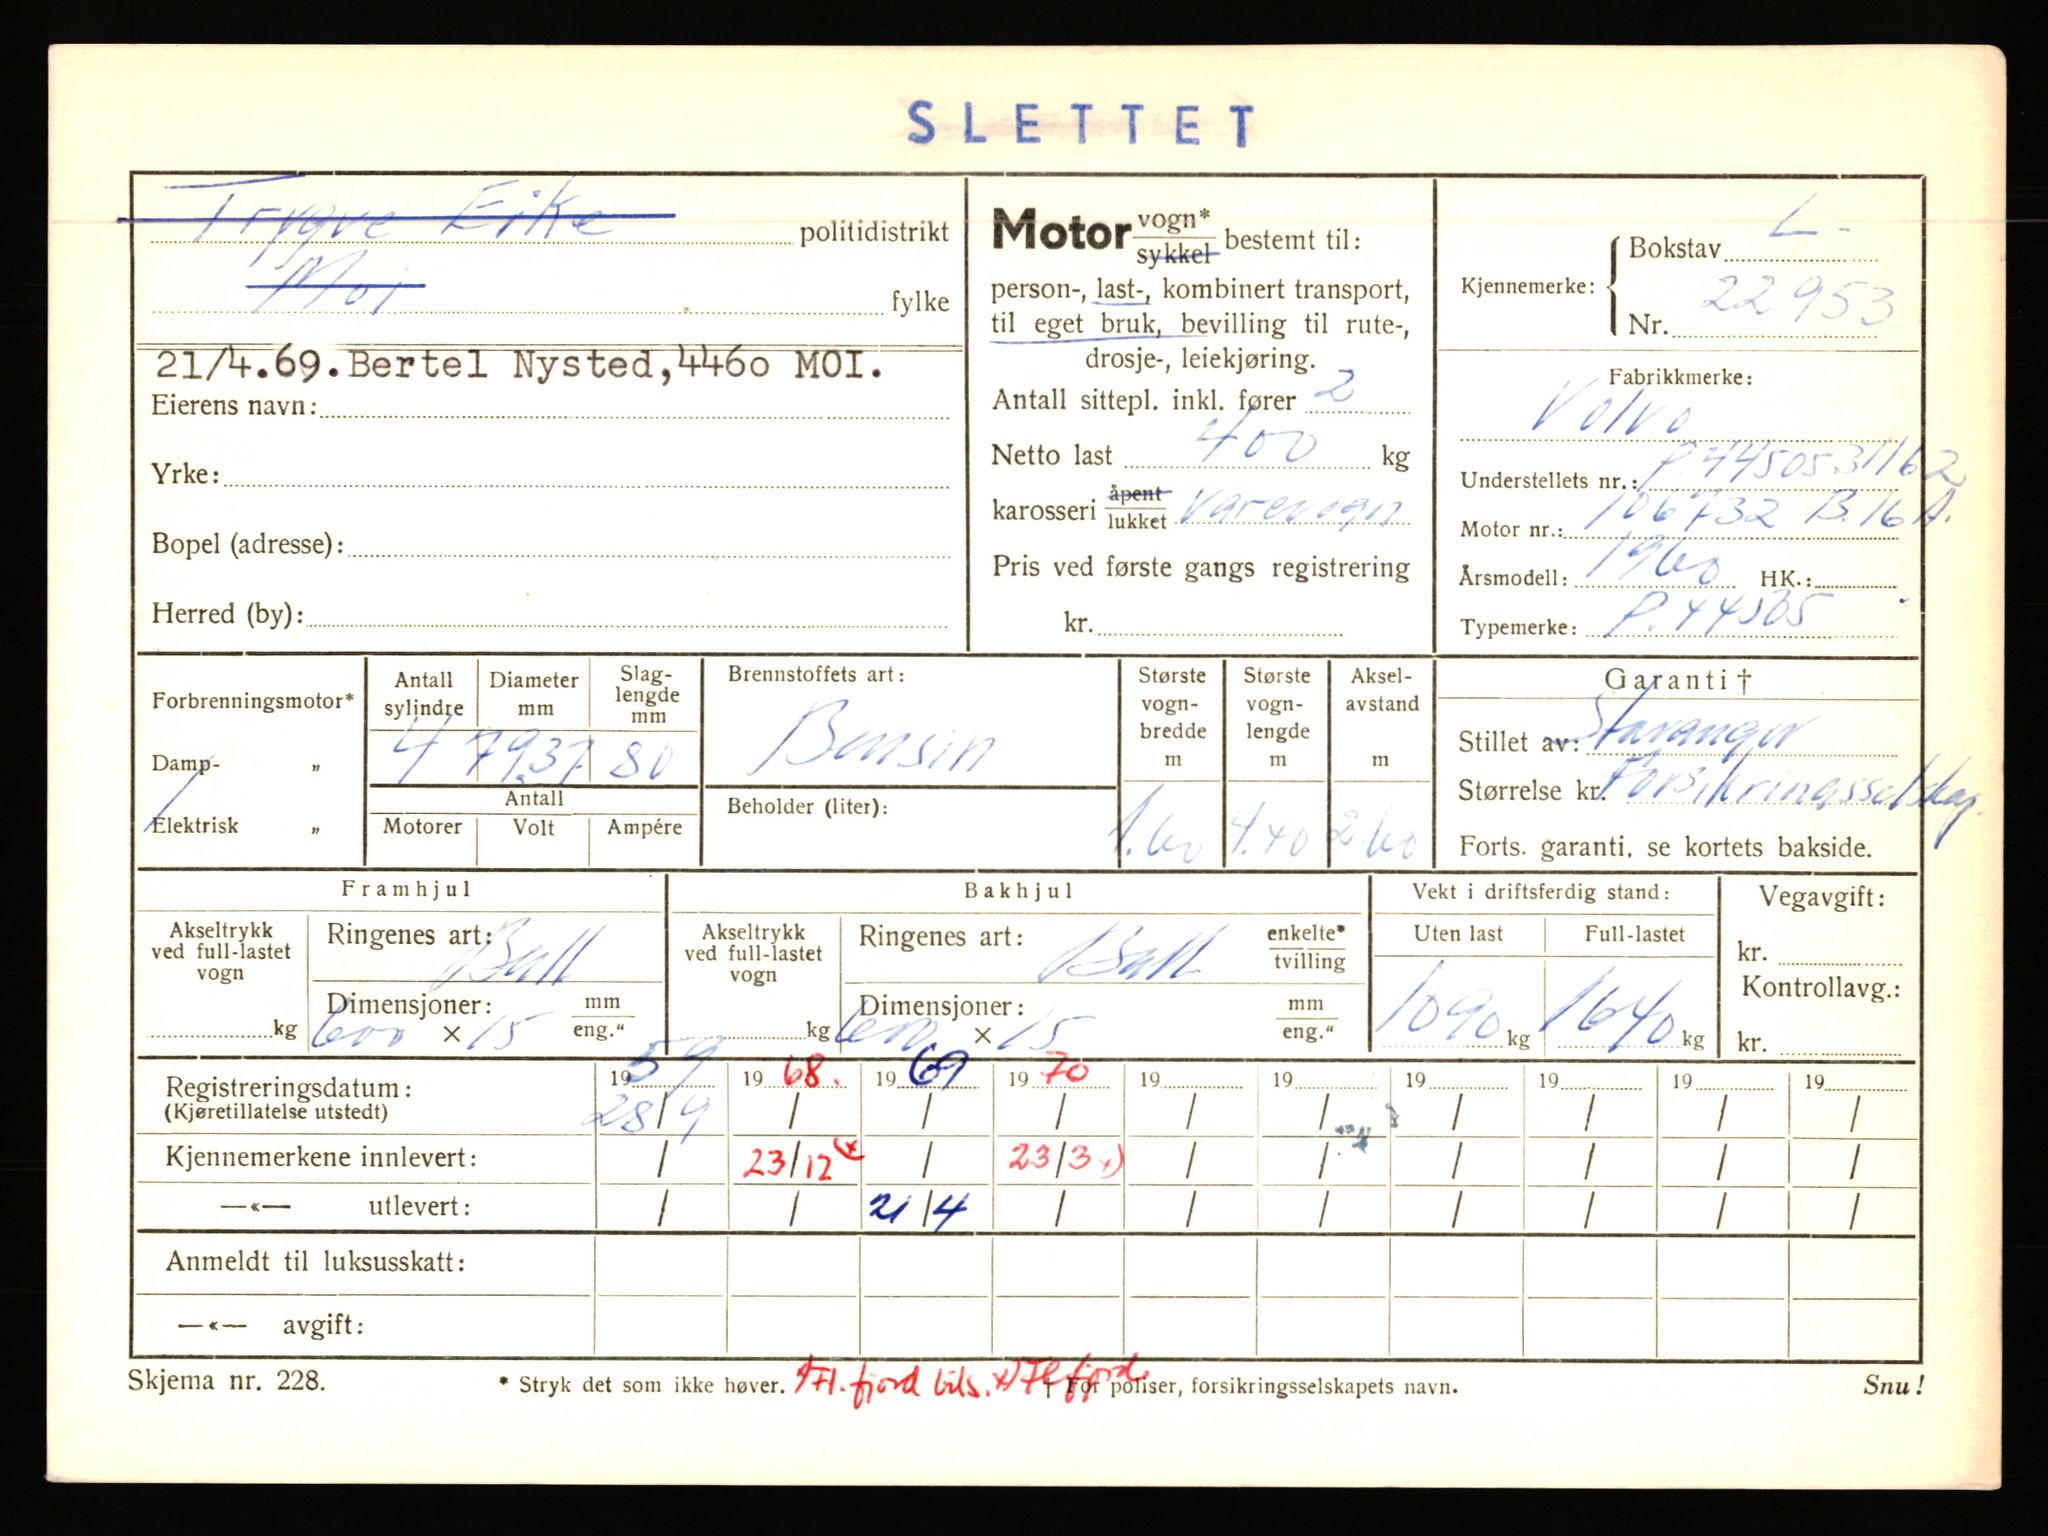 SLETTET
Trygve Eike politidistrikt
Moi fylke
21/4.69. Bertel Nysted, 4460 MOI.
Eierens navn:
Yrke:
Bopel (adresse):
Herred (by):
Motor vogn* / sykkel bestemt til:
person-, last-, kombinert transport,
til eget bruk, bevilling til rute-,
drosje-, leiekjøring.
Antall sittepl. inkl. fører 2
Netto last 400 kg
karosseri åpent / lukket Varevogn
Pris ved første gangs registrering
kr.
Kjennemerke: Bokstav L.
Nr. 22953
Fabrikkmerke:
Volvo
Understellets nr.: P.4450531162
Motor nr.: 106732 B.16A.
Årsmodell: 1960 HK.:
Typemerke: P.44505
Forbrenningsmotor*
Damp- „
Elektrisk „
Antall sylindre 4
Diameter mm 79.37
Slaglengde mm 80
Antall
Motorer Volt Ampére
Brennstoffets art:
Bensin
Beholder (liter):
Største vognbredde m 1.60
Største vognlengde m 4.40
Akselavstand m 2.60
Garanti †
Stillet av: Stavanger
Størrelse kr. Forsikringsselskap.
Forts. garanti, se kortets bakside.
Framhjul
Akseltrykk ved full-lastet vogn kg
Ringenes art: Ball
Dimensjoner: 600 × 15 mm / eng."
Bakhjul
Akseltrykk ved full-lastet vogn kg
Ringenes art: Ball enkelte* / tvilling
Dimensjoner: 600 × 15 mm / eng."
Vekt i driftsferdig stand:
Uten last 1090 kg
Full-lastet 1640 kg
Vegavgift:
kr.
Kontrollavg.:
kr.
Registreringsdatum: 1959 1968. 1969 1970 19 19 19 19 19 19
(Kjøretillatelse utstedt) 28/9 / / / / / / / / /
Kjennemerkene innlevert: / 23/12 x) / 23/3 x) / / / / / /
—«— utlevert: / / 21/4 / / / / / / /
Anmeldt til luksusskatt:
—«— avgift:
Skjema nr. 228.
* Stryk det som ikke høver. x) Fl.fjord bils. x) Fl.fjord
† For poliser, forsikringsselskapets navn.
Snu!